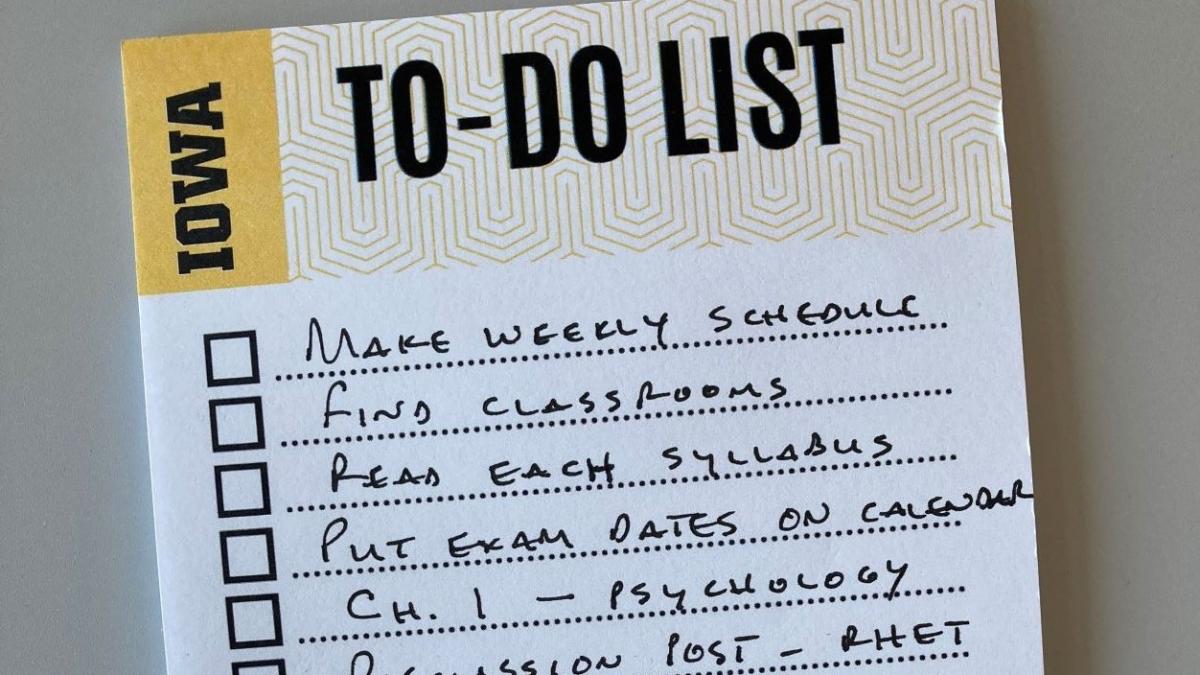 IOWA
TO-DO LIST
MAKE WEEKLY SCHEDULE
FIND CLASSROOMS
READ EACH SYLLABUS
PUT EXAM DATES ON CALENDAR
CH. 1 — PSYCHOLOGY
DISCUSSION POST - RHET